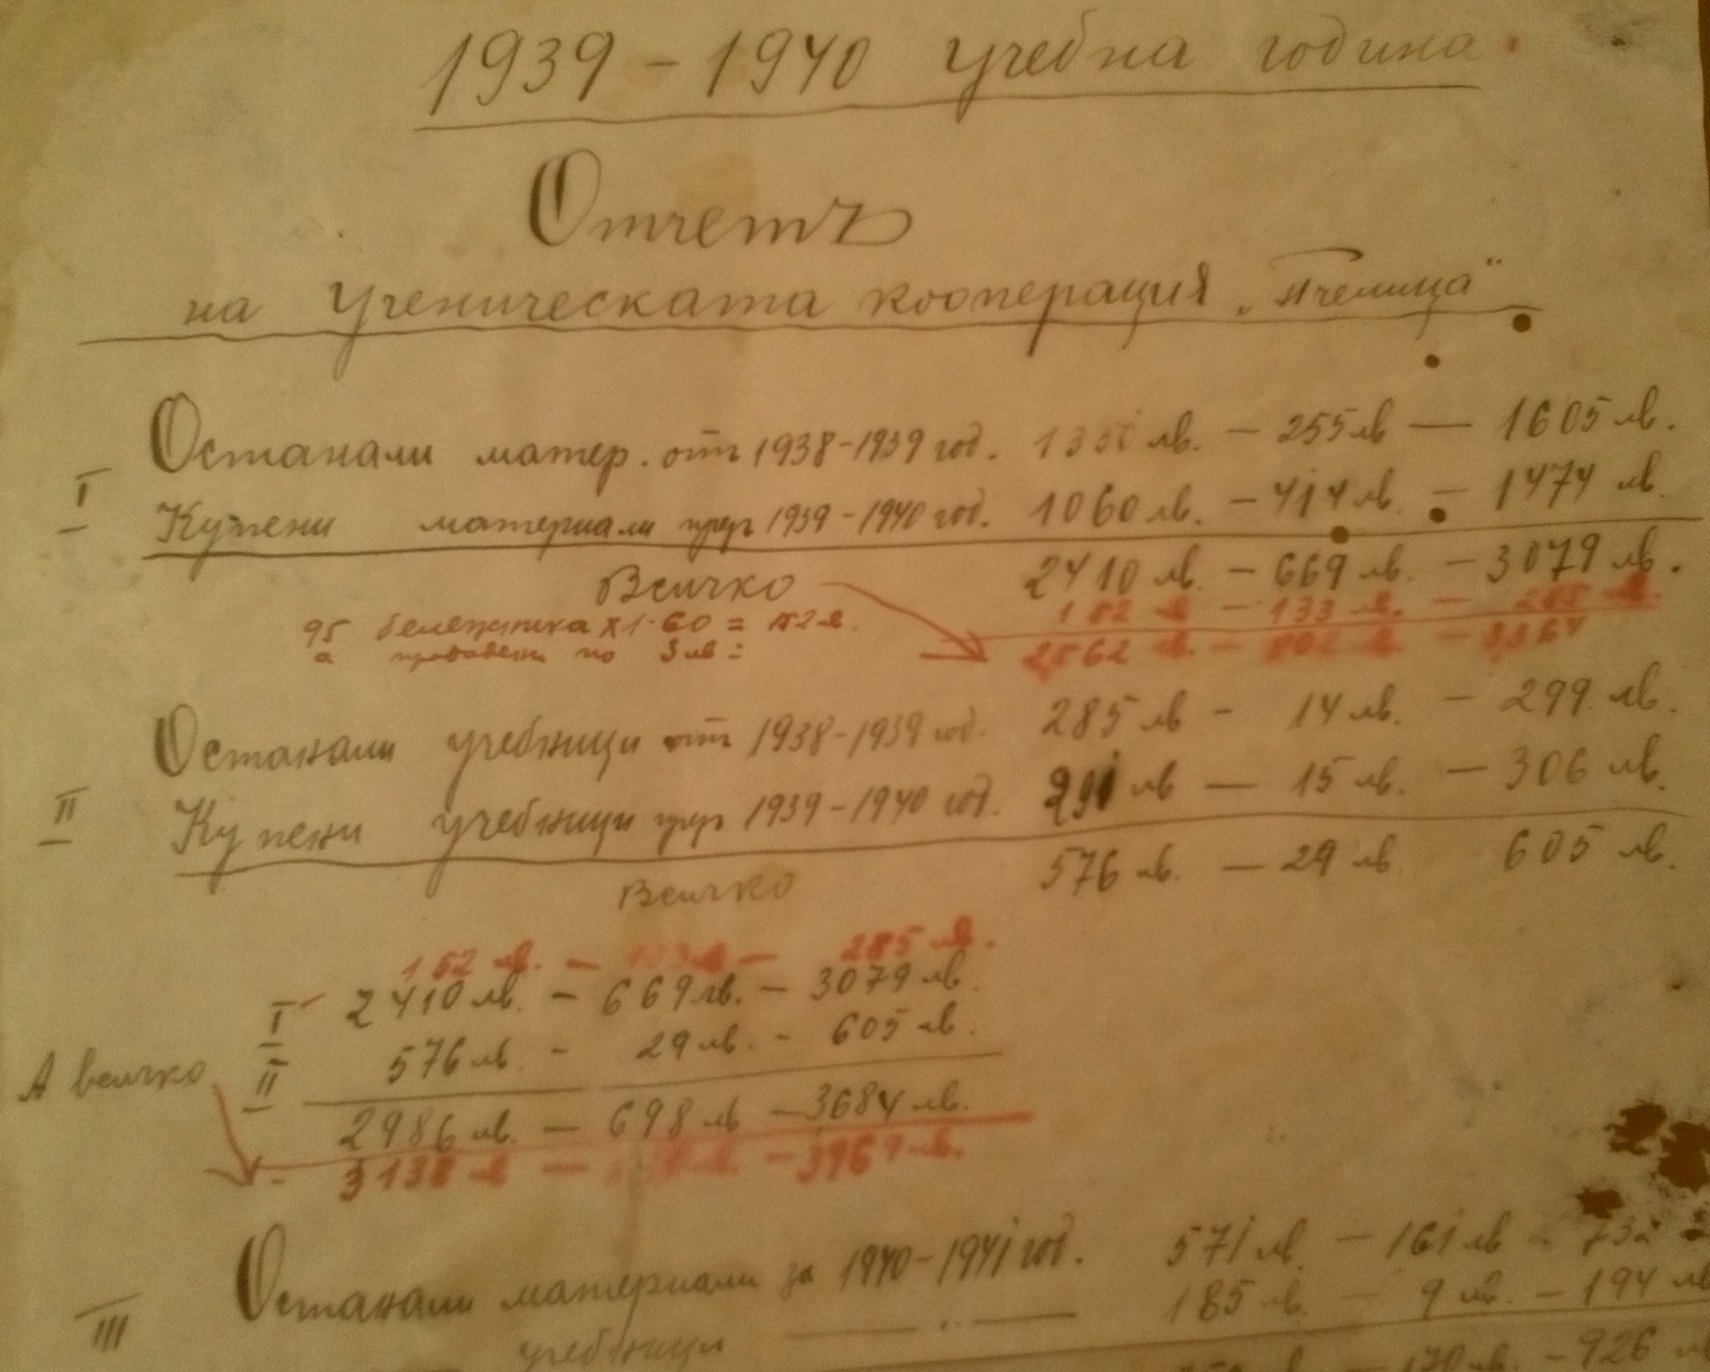 1939 – 1940 учебна година.
Отчетъ
на Ученическата кооперация „Пчелица"
Останали матер. отъ 1938-1939 год. 1350 лв. – 255 лв — 1605 лв.
I
Купени материали презъ 1939-1940 год. 1060 лв. – 414 лв. – 1474 лв.
Всичко 2410 лв. – 669 лв. – 3079 лв.
152 лв – 133 лв. – 285 лв.
95 бележника х 1·60 = 152 лв.
а продадени по 3 лв =
2562 лв. – 802 лв. – 3364
Останали учебници отъ 1938-1939 год. 285 лв – 14 лв. – 299 лв.
II
Купени учебници презъ 1939-1940 год. 291 лв — 15 лв. – 306 лв.
Всичко 576 лв. – 29 лв 605 лв.
152 лв. – 133 лв – 285 лв.
I 2410 лв. – 669 лв. – 3079 лв.
II 576 лв. – 29 лв. - 605 лв.
А всичко
2986 лв. – 698 лв – 3684 лв.
3138 лв – лв. – 3969 лв.
Останали материали за 1940-1941 год. 571 лв – 161 лв – 732
III
учебници — „ — 185 лв. – 9 лв. – 194 лв
лв – 170 лв – 926 лв